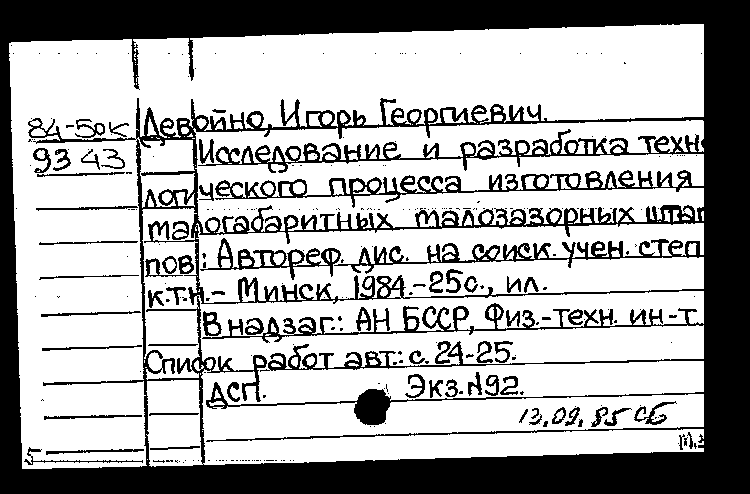 84-50к Девойно, Игорь Георгиевич.
9343 Исследование и разработка техно
логического процесса изготовления
малогабаритных малозазорных штам
пов: Автореф. дис. на соиск. учен. степ
к.т.н. - Минск, 1984.-25с., ил.
В надзаг.: АН БССР, Физ.-техн. ин-т.
Список работ авт.: с. 24-25.
ДСП. Экз. №92.
13.09.85 СБ
5